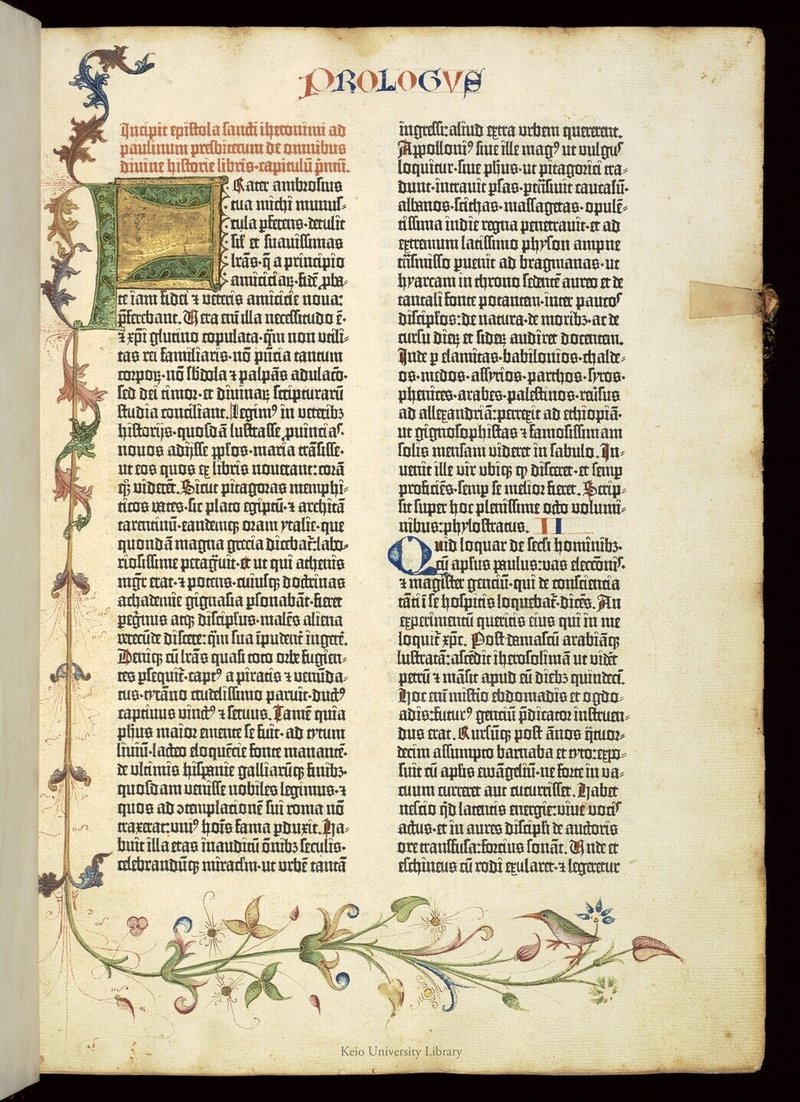 PROLOGVS
Incipit epistola sancti iheronimi ad
paulinum presbiterum de omnibus
divine historie libris·capitulū p̄mū.
Frater ambrosius
tua michi munus-
cula ꝑferens·detulit
sil' et suavissimas
lr̄as·q̄ a principio
amiciciaꝝ·fidē ꝓba-
te iam fidei ⁊ veteris amicicie nova:
p̄ferebant. Vera em̄ illa necessitudo ē·
⁊ xp̄i glutino copulata·q̄m non utili-
tas rei familiaris·nō pn̄cia tantum
corpoꝝ·nō sb̄dola ⁊ palpās adulaco·
sed dei timor·et divinaꝝ scripturarū
studia conciliant. Legimꝰ in veteribꝫ
historijs·quosdā lustrasse ꝓuinciaˢ·
novos adijsse ppl̄os·maria trāsisse·
ut eos quos ex libris noverant: corā
qꝫ viderēt. Sicut pitagoras memphi-
ticos vates·sic plato egiptū·⁊ architā
tarentinū·eandemqꝫ oram ytalie·que
quondā magna grecia dicebat̄: labo-
riosissime ꝑagͣuit·et ut qui athenis
mgr̄ erat·⁊ potens·cuiusqꝫ doctrinas
achademie gignasia ꝑsonabāt·fieret
peg̑nus atqꝫ discipulus·malēs aliena
verecūde discere: q̄m sua īpudent̄ ingerē.
Deniqꝫ cū lr̄as quasi toto orbe fugien-
tes ꝑsequit̄·captꝰ a piratis ⁊ venūda-
tus·tyrāno crudelissimo paruit·ductꝰ
captiuus vinctꝰ ⁊ seruus. Tamē quia
ph̄us maior emente se fuit·ad tytum
liuiū·lacteo eloquēcie fonte manantē·
de ultimis hispanie galliarūqꝫ finibꝫ·
quosdam venisse nobiles legimus·⁊
quos ad ꝯtemplacionē sui roma nō
traxerat: uniꝰ hoīs fama ꝑduxit. Ha-
buit illa etas inauditū oībꝫ seculis·
celebrandūqꝫ miraclm̄·ut urbē tantā
ingressi: aliud extra urbem quererent.
Appolloniꝰ siue ille magꝰ ut vulgꝰ
loquitur·siue ph̄us·ut pitagorici tra-
dunt·intrauit ꝑsas·ptn̄siuit caucasū·
albanos·scithas·massagetas·opulē-
tissima indie regna penetrauit·et ad
extremum latissimo physon amne
trāsmisso ꝑuenit ad bragmanas·ut
hyarcam in throno sedentē aureo et de
tantali fonte potantem·inter paucoˢ
discipulos: de natura·de moribꝫ·ac de
cursu dieꝝ et sideꝝ audiret docentem.
Inde ꝑ elamitas·babilonios·chalde-
os·medos·assyrios·parthos·syros·
phenices·arabes·palestinos·reūsus
ad allexandriā: perrexit ad ethiopiā·
ut gignosophistas ⁊ famosissimam
solis mensam videret in sabulo. In-
uenit ille vir ubiqꝫ qꝫ disceret·et semꝑ
proficiēs·semꝑ se melior fieret. Scrip-
sit super hoc plenissime octo volumi-
nibus: phylostratus. II
Quid loquar de secl'i hominibꝫ·
cū apl'us paulus: vas eleccōniˢ·
⁊ magister genciū·qui de consciencia
tāti ī se hospitis loquebat̄·dicēs. An
experimentū queritis eius qui in me
loquit̄ xp̄c. Post damascū arabiāqꝫ
lustratā: ascēdit iherosolimā ut vidēt
petrū ⁊ māsit apud eū diebꝫ quindeci.
Hoc em̄ misterio ebdomadis et ogdo-
adis: futurꝰ genciū p̄dicator instruen-
dus erat. Rursūqꝫ post ānos q̄tuor-
decim assumpto barnaba et tyto: expo-
suit cū apl'is ewāgeliū·ne forte in va-
cuum curreret aut cucurrisset. Habet
nescio qͥd latentis energie: viue vociˢ
actus·et in aures discipli de auctoris
ore transfusa: forcius sonāt. Unde et
eschineus cū rodi exularet·⁊ legeretur
Keio University Library